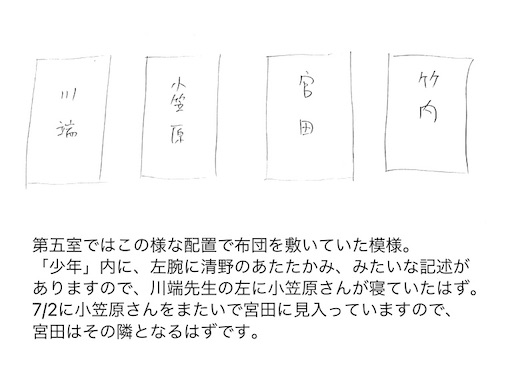 川端
小笠原
宮田
竹内
第五室ではこの様な配置で布団を敷いていた模様。
「少年」内に、左腕に清野のあたたかみ、みたいな記述が
ありますので、川端先生の左に小笠原さんが寝ていたはず。
7/2に小笠原さんをまたいで宮田に見入っていますので、
宮田はその隣となるはずです。